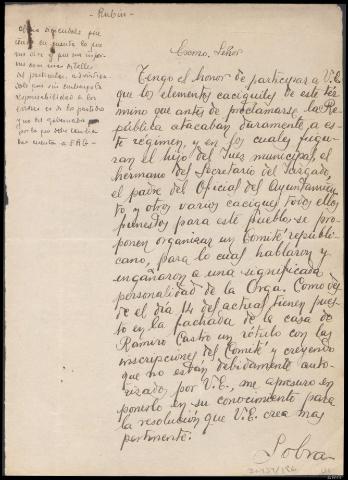 - Rubin -
que
cuenta lo que
me dice y que me
con mas detalles
del particular,
que sin embargo la
responsabilidad a los
del partido
y no del gobernador
por lo que debe
cuenta a F.R.G. -
Excmo. Señor
Tengo el honor de participar a V.E.
que los elementos caciquiles de este tér-
mino que antes de proclamarse la Re-
pública atacaban duramente a es-
te régimen, y en los cuales figu-
ran el hijo del Juez municipal, el
hermano del Secretario del Juzgado,
el padre del Oficial del Ayuntamien-
to y otros varios caciques todos ellos
funestos para este pueblo se pro-
ponen organizar un Comité republi-
cano, para lo cual hablaron y
engañaron a una significada
personalidad de la Orga. Como des-
de el dia 14 del actual tienen pues-
to en la fachada de la casa de
Ramiro Castro un rótulo con las
inscripciones del Comité y creyendo
que no están debidamente auto-
rizado, por V.E., me apresuro en
ponerlo en su conocimiento para
la resolución que V.E. crea mas
pertinente.
Sobra